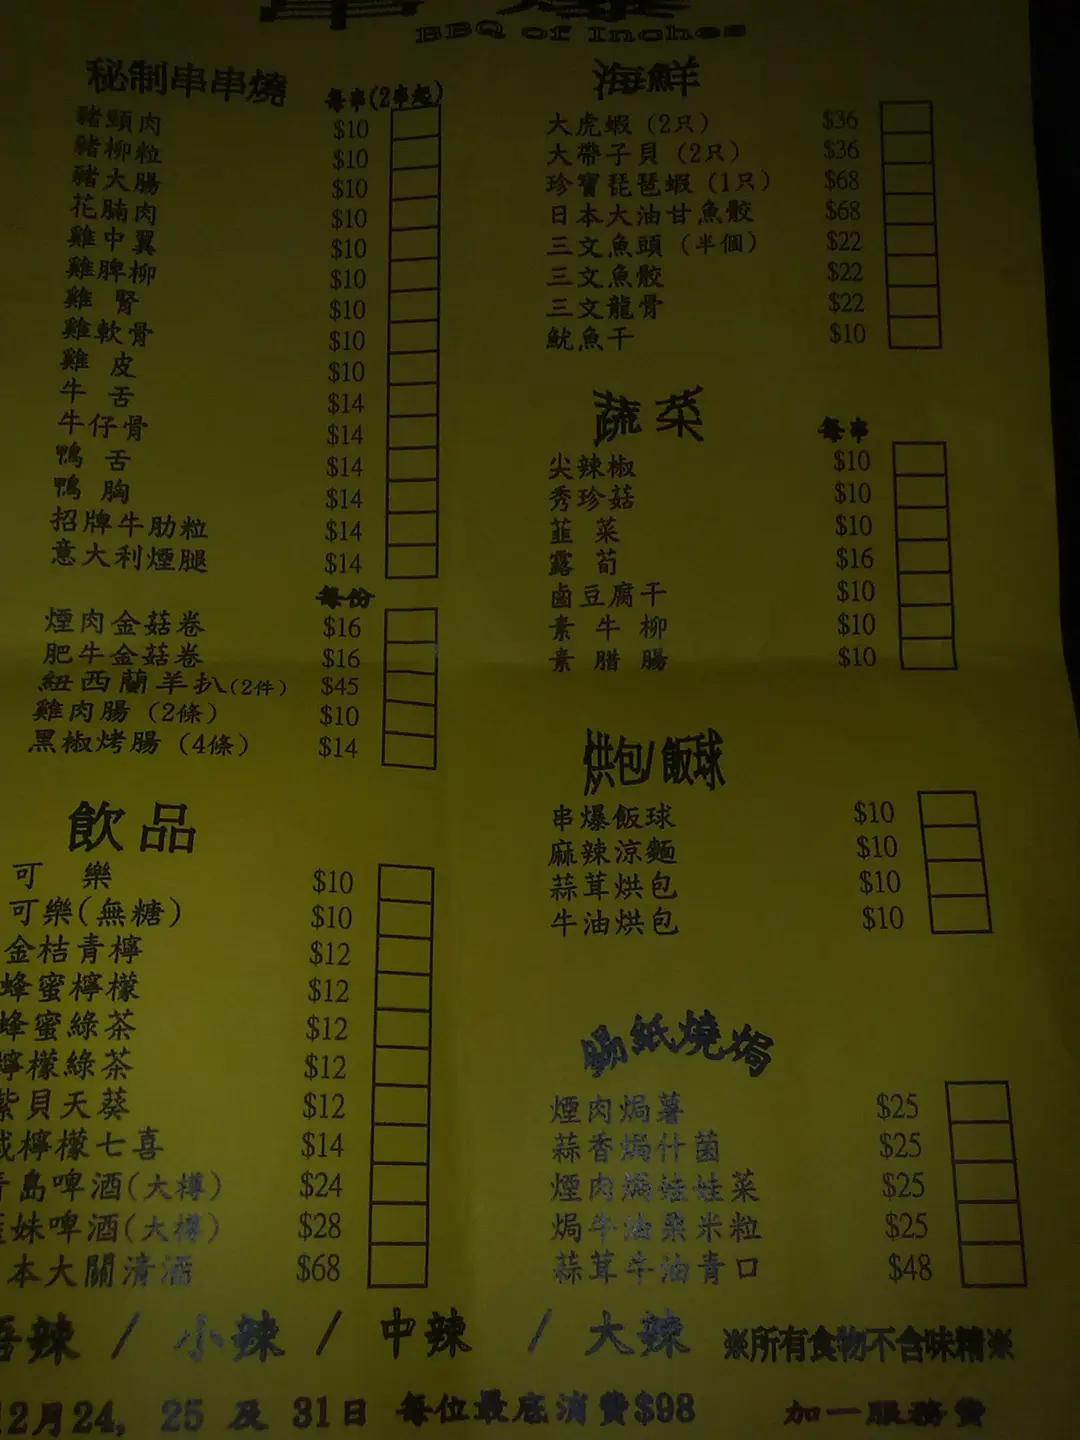 BBQ of Inches
秘制串串燒 每串(2串起)
豬頸肉 $10
豬柳粒 $10
豬大腸 $10
花腩肉 $10
雞中翼 $10
雞脾柳 $10
雞腎 $10
雞軟骨 $10
雞皮 $10
牛舌 $14
牛仔骨 $14
鴨舌 $14
鴨胸 $14
招牌牛肋粒 $14
意大利煙腿 $14
每份
煙肉金菇卷 $16
肥牛金菇卷 $16
紐西蘭羊扒(2件) $45
雞肉腸 (2條) $10
黑椒烤腸 (4條) $14
飲品
可樂 $10
可樂(無糖) $10
金桔青檸 $12
蜂蜜檸檬 $12
蜂蜜綠茶 $12
檸檬綠茶 $12
紫貝天葵 $12
檸檬七喜 $14
島啤酒(大樽) $24
妹啤酒(大樽) $28
本大關清酒 $68
海鮮
大虎蝦 (2只) $36
大帶子貝 (2只) $36
珍寶琵琶蝦 (1只) $68
日本大油甘魚骹 $68
三文魚頭 (半個) $22
三文魚骹 $22
三文龍骨 $22
魷魚干 $10
蔬菜 每串
尖辣椒 $10
秀珍菇 $10
韮菜 $10
露荀 $16
鹵豆腐干 $10
素牛柳 $10
素腊腸 $10
烘包/飯球
串爆飯球 $10
麻辣涼麵 $10
蒜茸烘包 $10
牛油烘包 $10
錫紙燒焗
煙肉焗薯 $25
蒜香焗什菌 $25
煙肉焗娃娃菜 $25
焗牛油粟米粒 $25
蒜茸牛油青口 $48
辣 / 小辣 / 中辣 / 大辣 ※所有食物不含味精※
12月24, 25 及 31日 每位最底消費$98 加一服務費